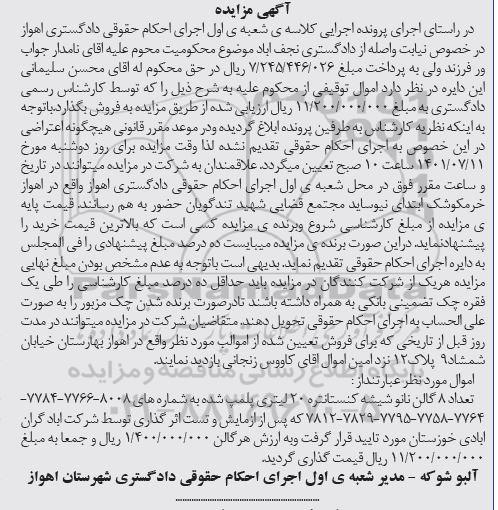 آگهی مزایده
در راستای اجرای پرونده اجرایی کلاسه ی شعبه ی اول اجرای احکام حقوقی دادگستری اهواز
در خصوص نیابت واصله از دادگستری نجف اباد موضوع محکومیت محوم علیه اقای نامدار جواب
ور فرزند ولی به پرداخت مبلغ ۷/۲۴۵/۴۴۶/۰۲۶ ریال در حق محکوم له اقای محسن سلیمانی
این دایره در نظر دارد اموال توقیفی از محکوم علیه به شرح ذیل را که توسط کارشناس رسمی
دادگستری به مبلغ ۱۱/۲۰۰/۰۰۰/۰۰۰ ریال ارزیابی شده از طریق مزایده به فروش بگذارد.باتوجه
به اینکه نظریه کارشناس به طرفین پرونده ابلاغ گردیده ودر موعد مقرر قانونی هیچگونه اعتراضی
در این خصوص به اجرای احکام حقوقی تقدیم نشده لذا وقت مزایده برای روز دوشنبه مورخ
۱۴۰۱/۰۷/۱۱ ساعت ۱۰ صبح تعیین میگردد. علاقمندان به شرکت در مزایده میتوانند در تاریخ
و ساعت مقرر فوق در محل شعبه ی اول اجرای احکام حقوقی دادگستری اهواز واقع در اهواز
خرمکوشک ابتدای نیوساید مجتمع قضایی شهید تندگویان حضور به هم رسانند. قیمت پایه
ی مزایده از مبلغ کارشناسی شروع وبرنده ی مزایده کسی است که بالاترین قیمت خرید را
پیشنهادنماید. دراین صورت برنده ی مزایده میبایست ده درصد مبلغ پیشنهادی را فی المجلس
به دایره اجرای احکام حقوقی تقدیم نماید. بدیهی است باتوجه به عدم مشخص بودن مبلغ نهایی
مزایده هریک از شرکت کنندگان در مزایده باید حداقل ده درصد مبلغ کارشناسی را طی یک
فقره چک تضمینی بانکی به همراه داشته باشند تادرصورت برنده شدن چک مزبور را به صورت
علی الحساب به اجرای احکام حقوقی تحویل دهند. متقاضیان شرکت در مزایده میتوانند در مدت
روز قبل از تاریخی که برای فروش تعیین شده از اموالپ مورد نظر واقع در اهواز بهارستان خیابان
شمشاد۹ پلاک۱۲ نزد امین اموال اقای کاووس زنجانی بازدید نمایند.
اموال مورد نظر عبارتنداز:
تعداد ۸ گالن نانو شیشه کنستانتره ۲۰ لیتری پلمپ شده به شماره های ۸۰۰۸-۷۷۶۶-۷۷۸۴-
۷۷۶۴-۷۷۵۸-۷۷۹۵-۷۸۲۹-۷۸۱۲ که پس از ازمایش و تست اثر گذاری توسط شرکت اباد گران
ابادی خوزستان مورد تایید قرار گرفت وبه ارزش هرگالن ۱/۴۰۰/۰۰۰/۰۰۰ ریال و جمعا به مبلغ
۱۱/۲۰۰/۰۰۰/۰۰۰ ریال قیمت گذاری گردید.
آلبو شوکه - مدیر شعبه ی اول اجرای احکام حقوقی دادگستری شهرستان اهواز